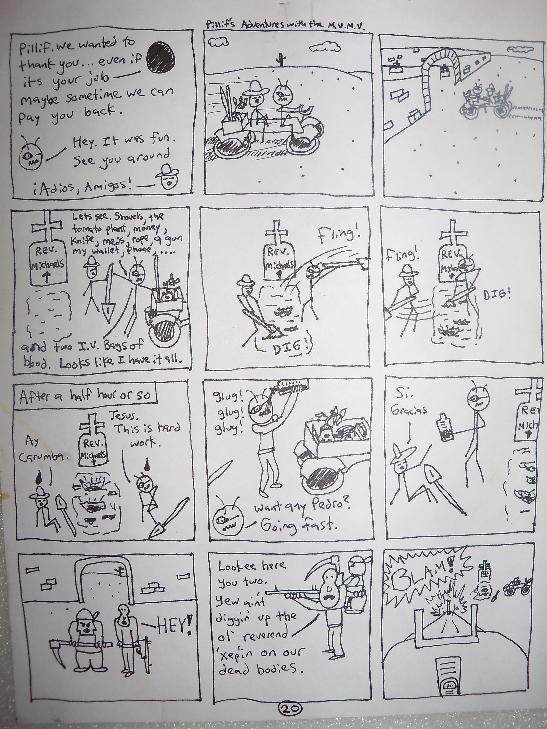 Pillif's Adventures with the M.U.M.V.
Pillif. we wanted to
thank you... even if
it's your job
maybe sometime we can
pay you back.
Hey. It was fun
See you around
¡Adios, Amigos!
Lets see, Shovels, the
tomato plant, money,
knife, meds, rope, a gun
my wallet, phone, ....
REV.
Michaels
and two I.V. Bags of
blood. Looks like I have it all.
Fling!
REV.
Michaels
DIG!
Fling!
REV.
DIG!
After a half hour or so
Ay
Carumba.
Jesus.
This is hard
work.
REV.
Michaels
glug!
glug!
glug!
want any Pedro?
Going fast.
Si.
Gracias
REV
Mich
HEY!
Lookee here
you two.
Yew ain't
diggin' up the
ol' reverend
'xepin on our
dead bodies.
BLAM!
20